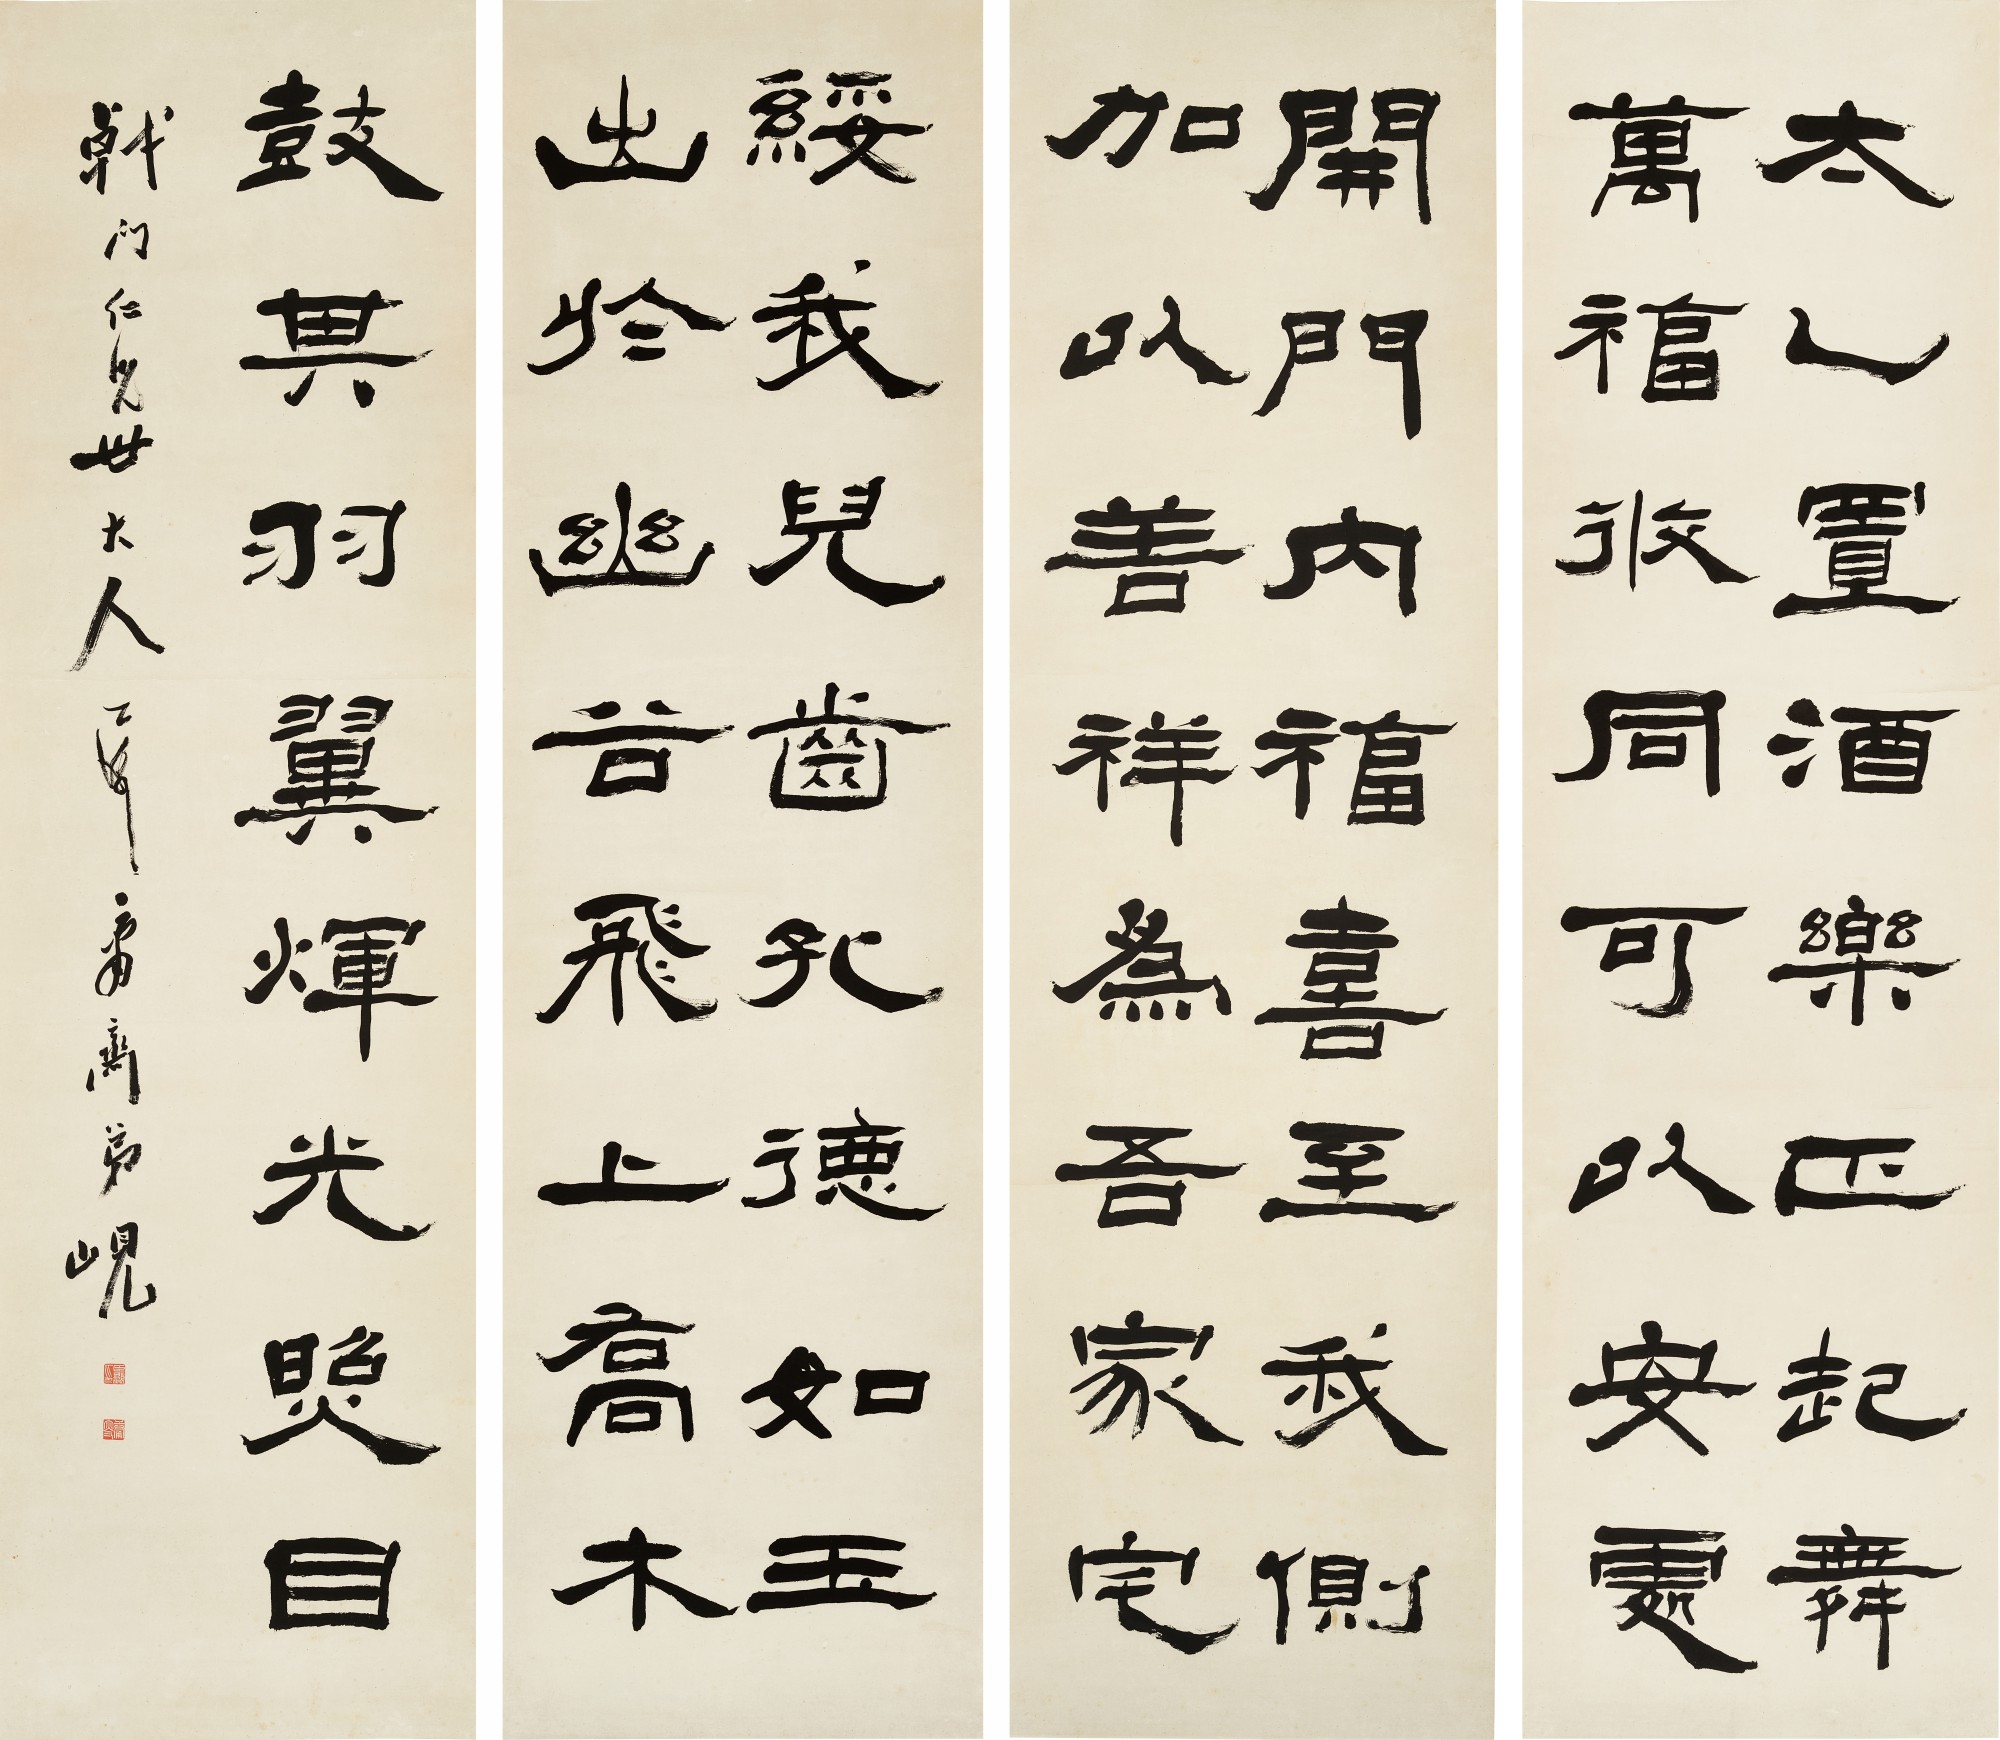 太乙置酒樂正起舞
萬福攸同可以安處
開門內福喜至我側
加以善祥為吾家宅
綏我兒齒孔德如玉
出於幽谷飛上高木
鼓其羽翼煇光照目
戟門仁兄世大人
齋弟峴